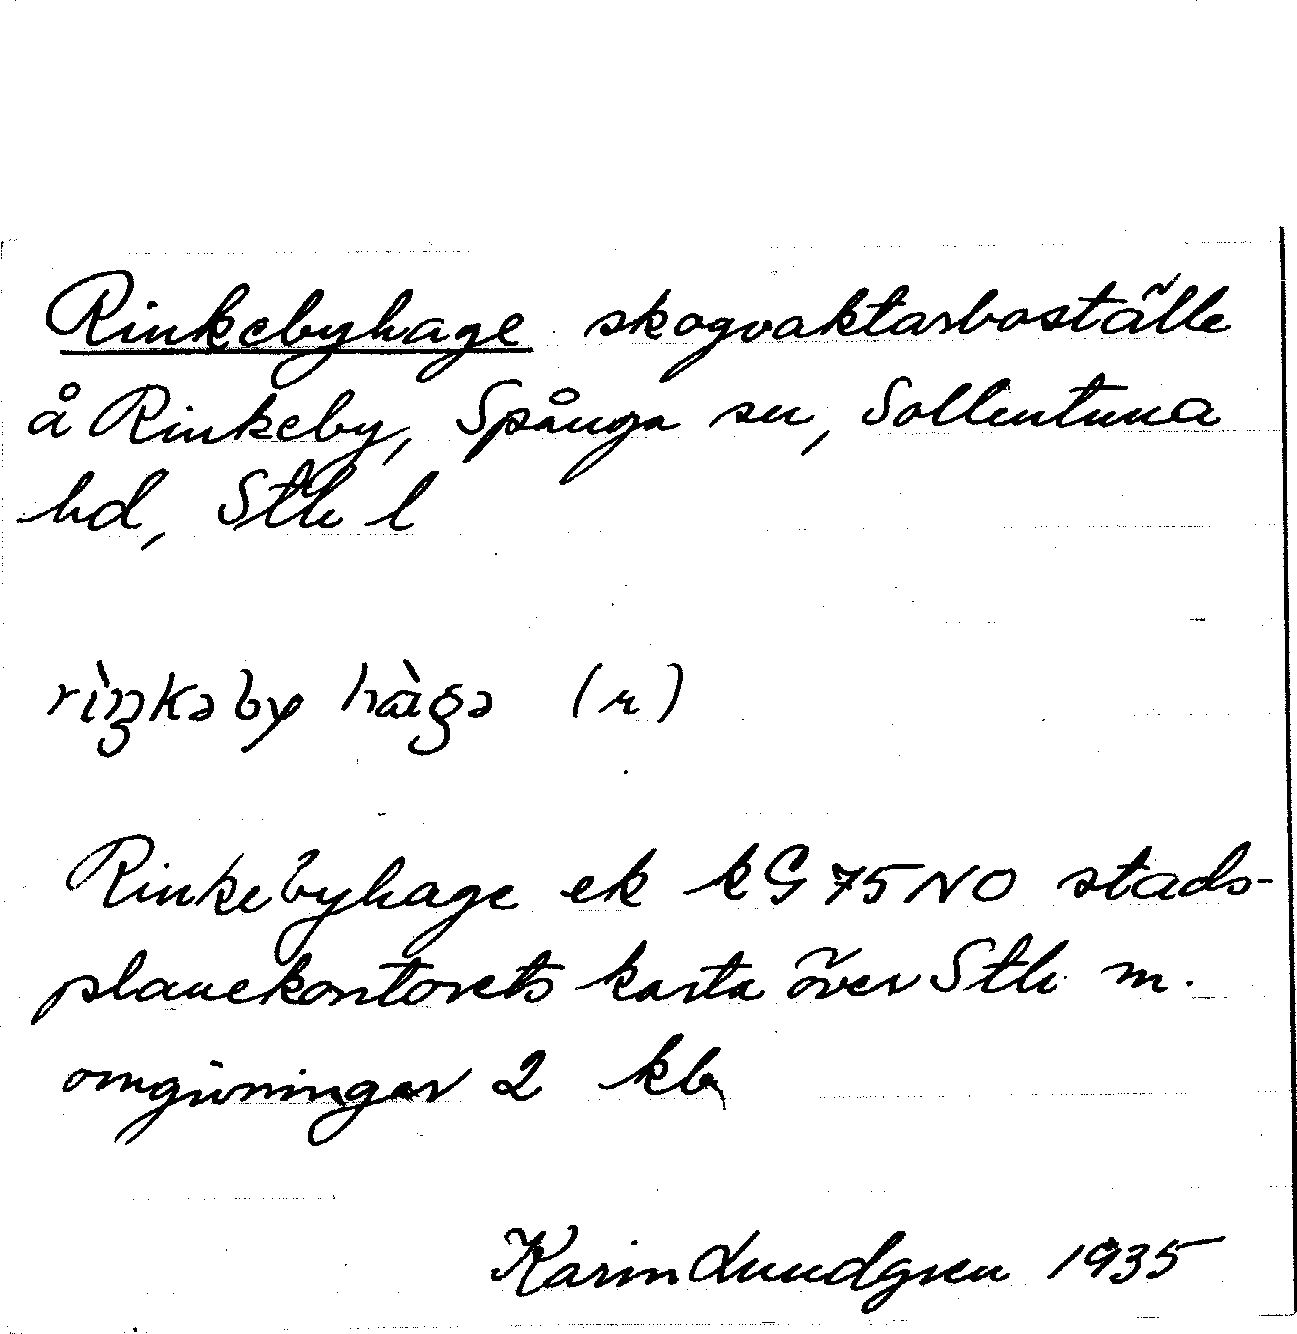 Rinkebyhage skogvaktarboställe
å Rinkeby, Spånga sn, Sollentuna
hd, Sth l
rìŋkəby hàgə (r)
Rinkebyhage ek kG 75 NO stads-
planekontorets karta över Sth m.
omgivningar 2 kb
Karin Lundgren 1935